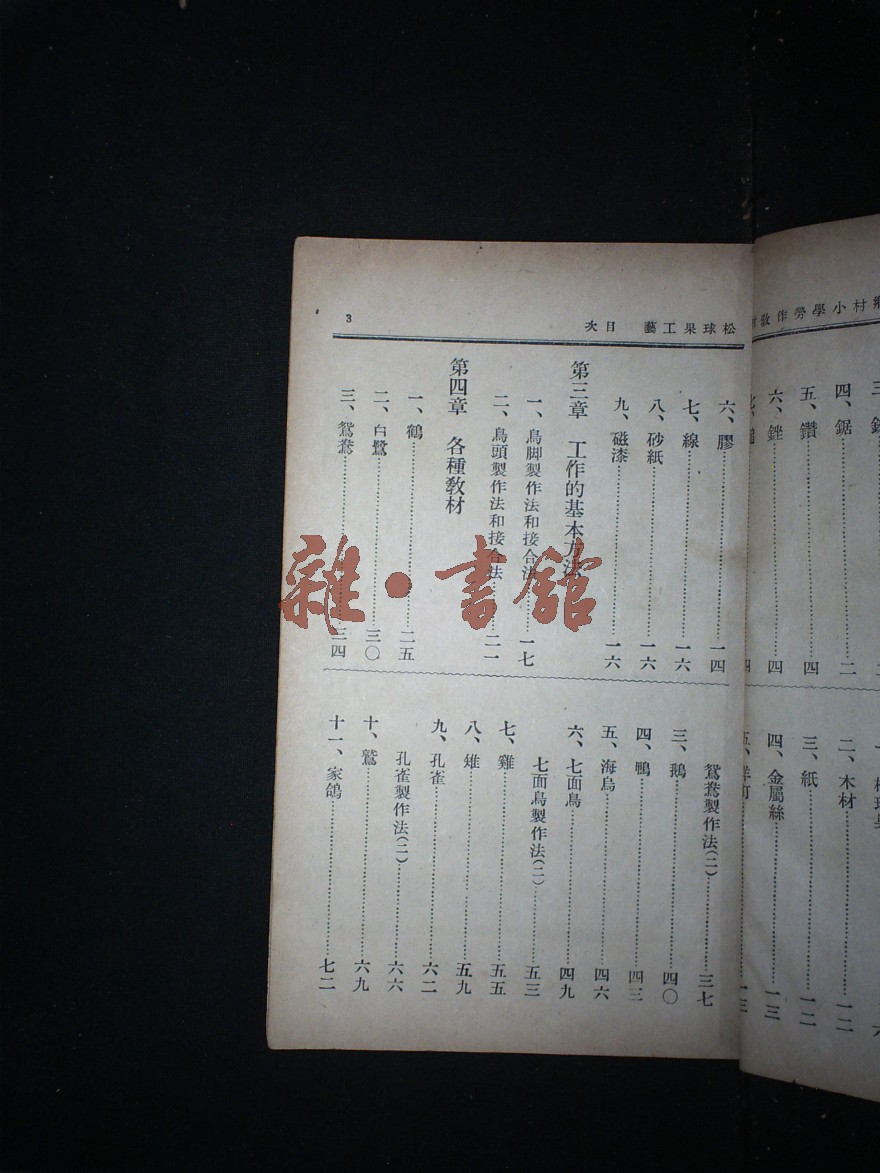 鄉村小學勞作教材
四、鋸……二
五、鑽……四
六、銼……四
二、木材……一二
三、紙……一二
四、金屬絲……一三
五、洋釘……一三
松球果工藝 目次
3
六、膠……一四
七、線……一六
八、砂紙……一六
九、磁漆……一六
第三章 工作的基本方法
一、鳥脚製作法和接合法……一七
二、鳥頭製作法和接合法……二一
第四章 各種教材
一、鶴……二五
二、白鷺……三〇
三、鴛鴦……三四
鴛鴦製作法(二)……三七
三、鵝……四〇
四、鴨……四三
五、海鳥……四六
六、七面鳥……四九
七面鳥製作法(二)……五三
七、雞……五五
八、雉……五九
九、孔雀……六二
孔雀製作法(二)……六六
十、鷲……六九
十一、家鴿……七二
雜·書館